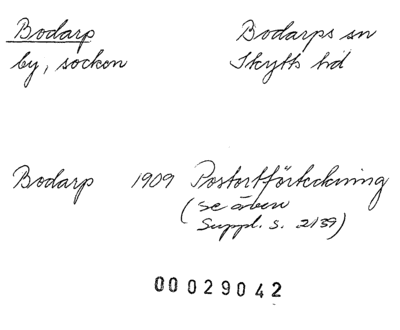 Bodarp Bodarps sn
by, socken Skytts hd
Bodarp 1909 Postortförteckning
(se även
Suppl. s. 2139)
00029042